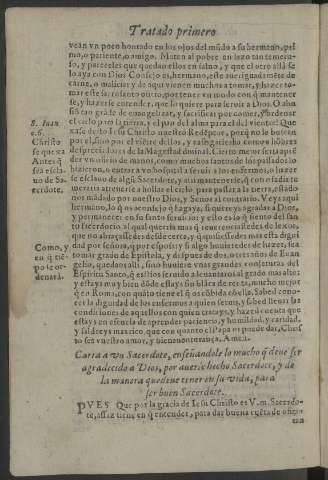 Tratado primero
vean vn poco honrado en los ojos del mũdo a su hermano, pri
mo, o pariente, o amigo. Meten al pobre en lazo tan temero-
so, y pareceles que quedan ellos en saluo, y que el otro allà se
lo aya con Dios. Consejo es, hermano, este
carne, o malicia: y de aqui vienen muchos a tomar, y a hazer to-
mar este sacrosanto oficio, por tener vn modo con q̃ mantener
se, y hazerse entender, que lo quiere para seruir a Dios. O aba
y sacrificar por comer, y ordenar
el cielo para la tierra, y el pan del alma por el del vientre! Que
xase desto Iesu Christo nuestro Redẽptor, porq̃ no le buscan
por el, sino por el viẽtre dellos: y castigarlosha como a hõbres
despreciadores de la Magestad diuinal. Cierto mejor seria apr
der vn oficio de manos, como muchos santos de los passados lo
hizieron, o entrar a vn hospital a seruir a los enfermos, o hazer
se esclauo de algũ Sacerdote, y assi mantenerse, q̃ con osadia te
meraria atreuerse a hollar el cielo para passar a la tierra, estado
nos mãdado por nuestro Dios, y Señor al contrario. Veys aqui
hermano, lo q̃ os aconsejo q̃ hagays, si quereys agradar a Dios,
y permanecer en su santo seruicio: y esto es lo q̃ siento del san
to Sacerdocio: al qual querria mas q̃ reuerenciassedes de lexos,
que no abraçassedes desde cerca, y q̃ quisiessedes mas esta digni
dad por señora, q̃ por esposa: y si algo huuieredes de hazer, sea
tomar grado de Epistola, y despues de dos, o tres años de Euan
gelio, quedaos alli, sino huuiere vnas grandes conjeturas del
Espiritu Santo, q̃ es Dios seruido a leuantaros al grado mas alto:
y estays muy bien dõde estays sin blãca de renta, mucho mejor
q̃ en Roma, con quãto tiene el q̃ os cõbida cõ ella. Sabed cono-
cer la dignidad de los enfermos a quien seruis, y sabed lleuar las
condiciones de aquellos con quien tratays, y hazed cuenta que
estays en escuela de aprender paciencia, y humildad, y caridad,
y saldreys mas rico, que con quanto el Papa os puede dar, Chris
to sea vuestro amor, y bienauenturança, Amen.
S. Iuan
c.6.
Christo
se quexa
Antes q̃
sea escla-
uo de Sa-
cerdote.
Como, y
en q̃ tiẽ-
po se or-
denarà.
Carta a vn Sacerdote, enseñandole lo mucho q̃ deue ser
agradecido a Dios, por auerle hecho Sacerdote, y de
la manera que deue tener en su vida, para
ser buen Sacerdote.
PVES Que por la gracia de Iesu Christo es V.m. Sacerdo-
te, assaz tiene en q̃ entender, para dar buena cuẽta de oficio
tan